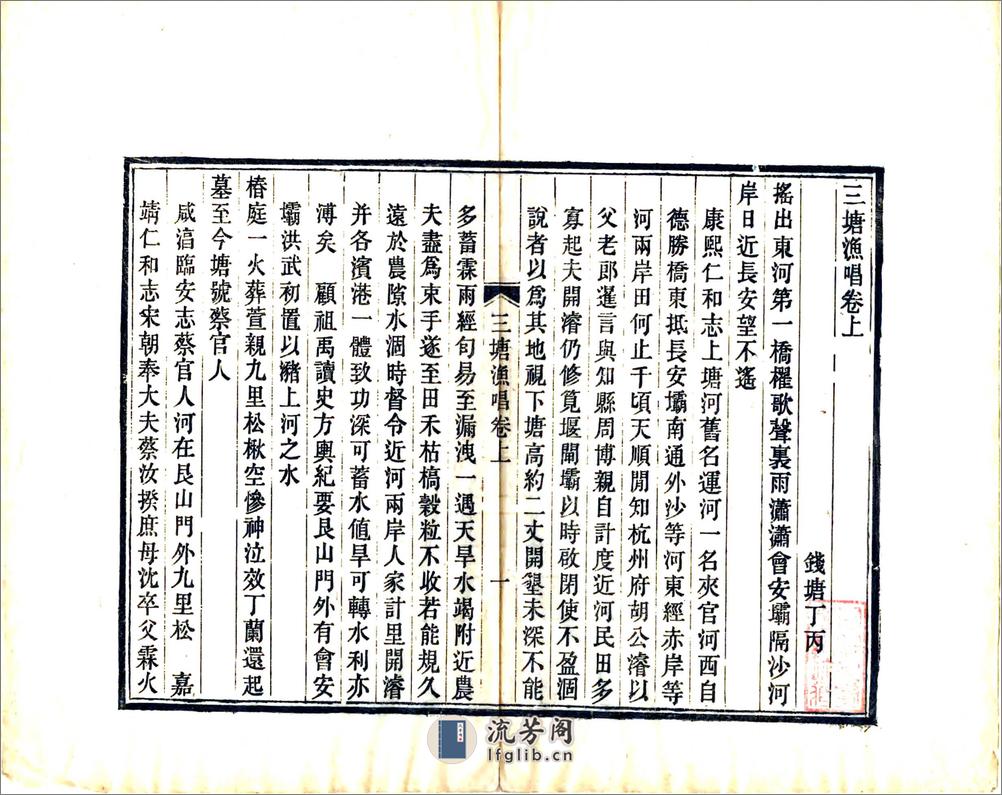 三塘漁唱卷上
錢塘丁丙
搖出東河第一橋櫂歌聲裏雨瀟瀟會安壩隔沙河
岸日近長安望不遙
康熙仁和志上塘河舊名運河一名夾官河西自
德勝橋東抵長安壩南通外沙等河東經赤岸等
河兩岸田何止千頃天順間知杭州府胡公濬以
父老郎暹言與知縣周博親自計度近河民田多
寡起夫開濬仍修筧堰閘壩以時啟閉使不盈涸
說者以爲其地視下塘高約二丈開墾未深不能
三塘漁唱卷上
一
多蓄霖雨經旬易至漏洩一遇天旱水竭附近農
夫盡爲束手遂至田禾枯槁穀粒不收若能規久
遠於農隙水涸時督令近河兩岸人家計里開濬
并各濱港一體致功深可蓄水值旱可轉水利亦
溥矣 顧祖禹讀史方輿紀要艮山門外有會安
壩洪武初置以瀦上河之水
椿庭一火葬萱親九里松楸空慘神泣效丁蘭還起
墓至今塘號蔡官人
咸淳臨安志蔡官人河在艮山門外九里松 嘉
靖仁和志宋朝奉大夫蔡汝揆庶母沈卒父霖火
流芳阁
lfglib.cn